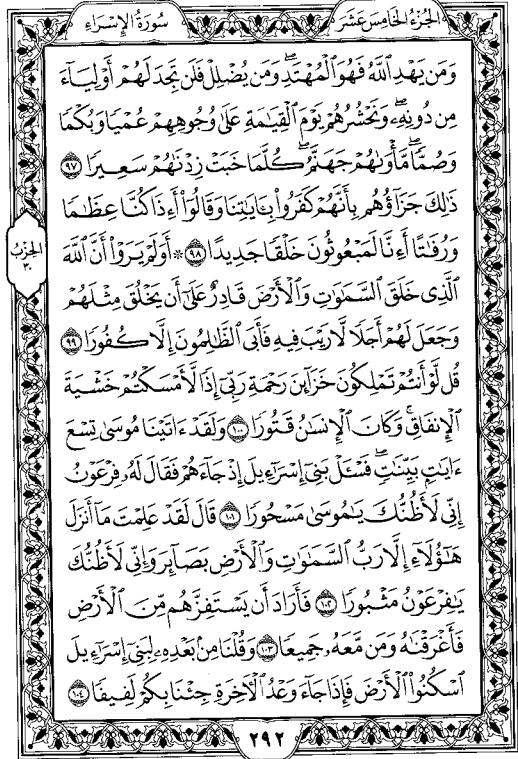 الجزء الخامس عشر
سورة الإسراء
وَمَن يَهْدِ ٱللَّهُ فَهُوَ ٱلْمُهْتَدِ ۖ وَمَن يُضْلِلْ فَلَن تَجِدَ لَهُمْ أَوْلِيَآءَ
مِن دُونِهِۦ ۖ وَنَحْشُرُهُمْ يَوْمَ ٱلْقِيَٰمَةِ عَلَىٰ وُجُوهِهِمْ عُمْيًا وَبُكْمًا
وَصُمًّا ۖ مَّأْوَىٰهُمْ جَهَنَّمُ ۖ كُلَّمَا خَبَتْ زِدْنَٰهُمْ سَعِيرًا ٩٧
ذَٰلِكَ جَزَآؤُهُم بِأَنَّهُمْ كَفَرُوا۟ بِـَٔايَٰتِنَا وَقَالُوٓا۟ أَءِذَا كُنَّا عِظَٰمًا
وَرُفَٰتًا أَءِنَّا لَمَبْعُوثُونَ خَلْقًا جَدِيدًا ٩٨ ۞ أَوَلَمْ يَرَوْا۟ أَنَّ ٱللَّهَ
ٱلَّذِى خَلَقَ ٱلسَّمَٰوَٰتِ وَٱلْأَرْضَ قَادِرٌ عَلَىٰٓ أَن يَخْلُقَ مِثْلَهُمْ
وَجَعَلَ لَهُمْ أَجَلًا لَّا رَيْبَ فِيهِ فَأَبَى ٱلظَّٰلِمُونَ إِلَّا كُفُورًا ٩٩
قُل لَّوْ أَنتُمْ تَمْلِكُونَ خَزَآئِنَ رَحْمَةِ رَبِّىٓ إِذًا لَّأَمْسَكْتُمْ خَشْيَةَ
ٱلْإِنفَاقِ ۚ وَكَانَ ٱلْإِنسَٰنُ قَتُورًا ١٠٠ وَلَقَدْ ءَاتَيْنَا مُوسَىٰ تِسْعَ
ءَايَٰتٍۭ بَيِّنَٰتٍ ۖ فَسْـَٔلْ بَنِىٓ إِسْرَٰٓءِيلَ إِذْ جَآءَهُمْ فَقَالَ لَهُۥ فِرْعَوْنُ
إِنِّى لَأَظُنُّكَ يَٰمُوسَىٰ مَسْحُورًا ١٠١ قَالَ لَقَدْ عَلِمْتَ مَآ أَنزَلَ
هَٰٓؤُلَآءِ إِلَّا رَبُّ ٱلسَّمَٰوَٰتِ وَٱلْأَرْضِ بَصَآئِرَ وَإِنِّى لَأَظُنُّكَ
يَٰفِرْعَوْنُ مَثْبُورًا ١٠٢ فَأَرَادَ أَن يَسْتَفِزَّهُم مِّنَ ٱلْأَرْضِ
فَأَغْرَقْنَٰهُ وَمَن مَّعَهُۥ جَمِيعًا ١٠٣ وَقُلْنَا مِنۢ بَعْدِهِۦ لِبَنِىٓ إِسْرَٰٓءِيلَ
ٱسْكُنُوا۟ ٱلْأَرْضَ فَإِذَا جَآءَ وَعْدُ ٱلْءَاخِرَةِ جِئْنَا بِكُمْ لَفِيفًا ١٠٤
الحزب
٣٠
٢٩٢